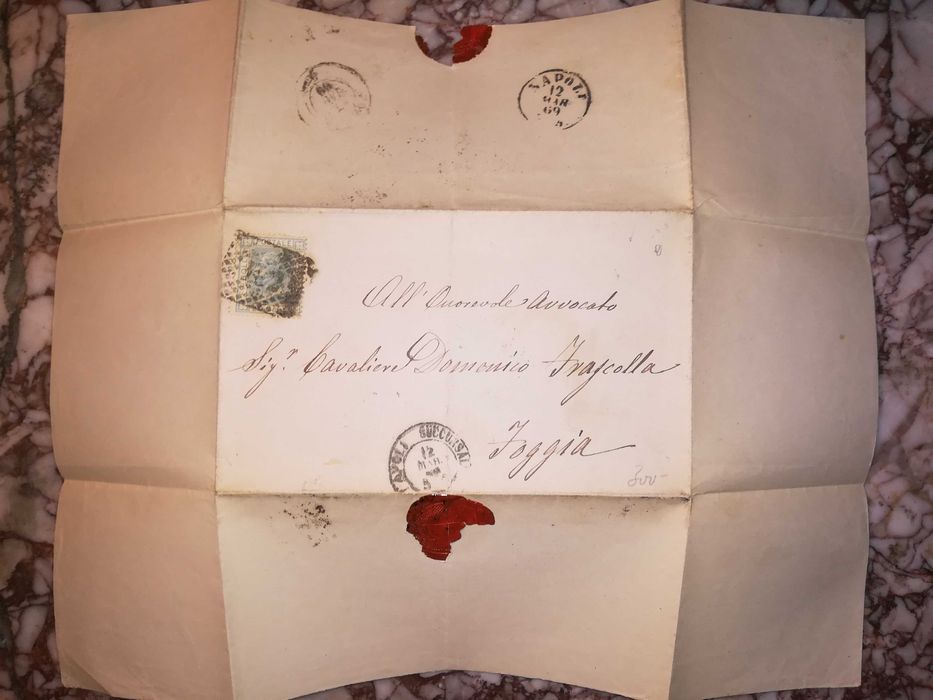 NAPOLI
12
MAR
69
POSTALE
All' Onorevole Avvocato
Sigr. Cavaliere Domenico Frascolla
Foggia
NAPOLI SUCCURSALE
12
MAR
300-